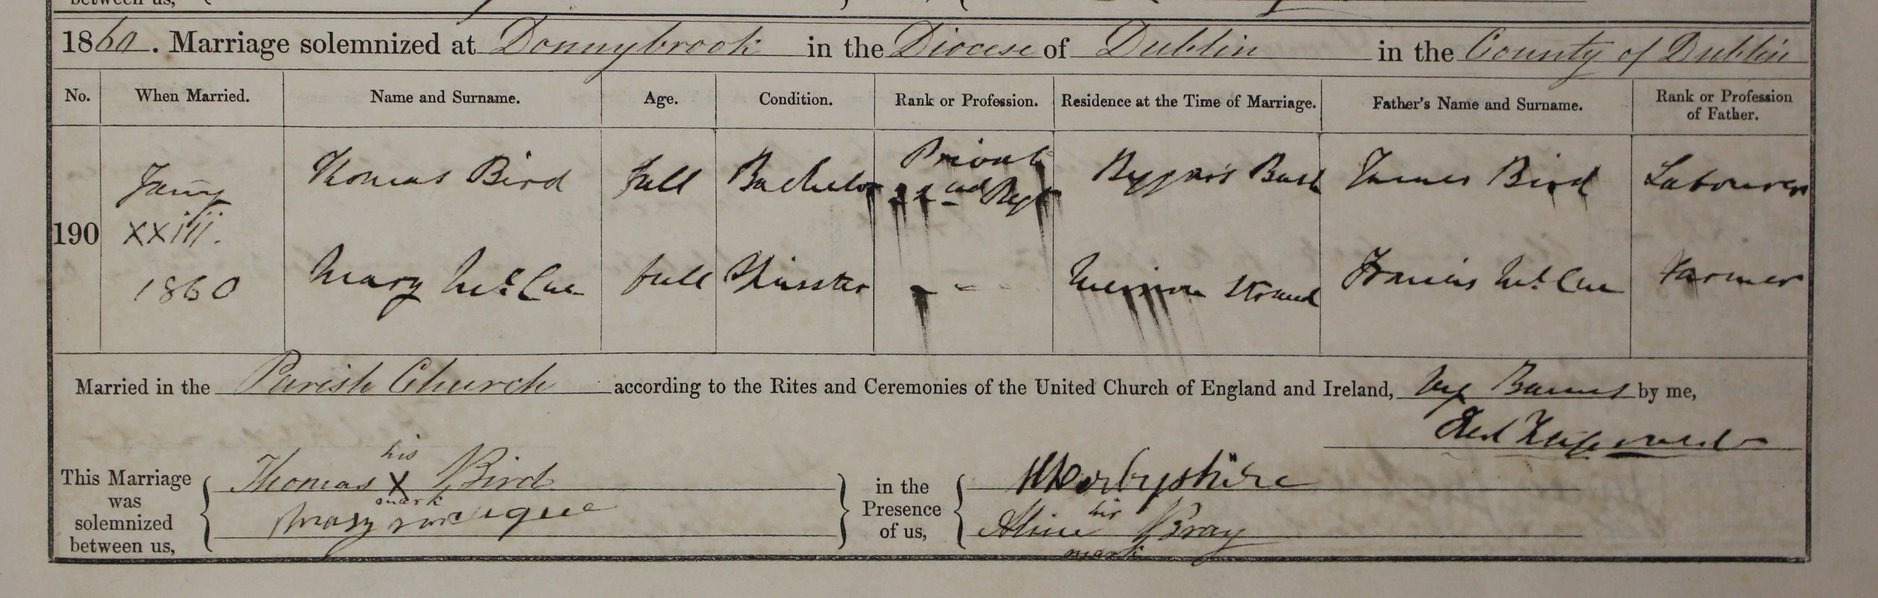 between us,
1860. Marriage solemnized at Donnybrook in the Diocese of Dublin in the County of Dublin
No. When Married. Name and Surname. Age. Condition. Rank or Profession. Residence at the Time of Marriage. Father's Name and Surname. Rank or Profession of Father.
190
Jany XXIII. 1860
Thomas Bird full Bachelor Private 22nd Regt Beggars Bush James Bird Labourer
Mary McCue full Spinster - - - Merrion Strand Francis McCue Farmer
Married in the Parish Church according to the Rites and Ceremonies of the United Church of England and Ireland, by Banns by me,
Fitzgerald
This Marriage was solemnized between us,
Thomas his X mark Bird
Mary
in the Presence of us,
Derbyshire
his mark Bray